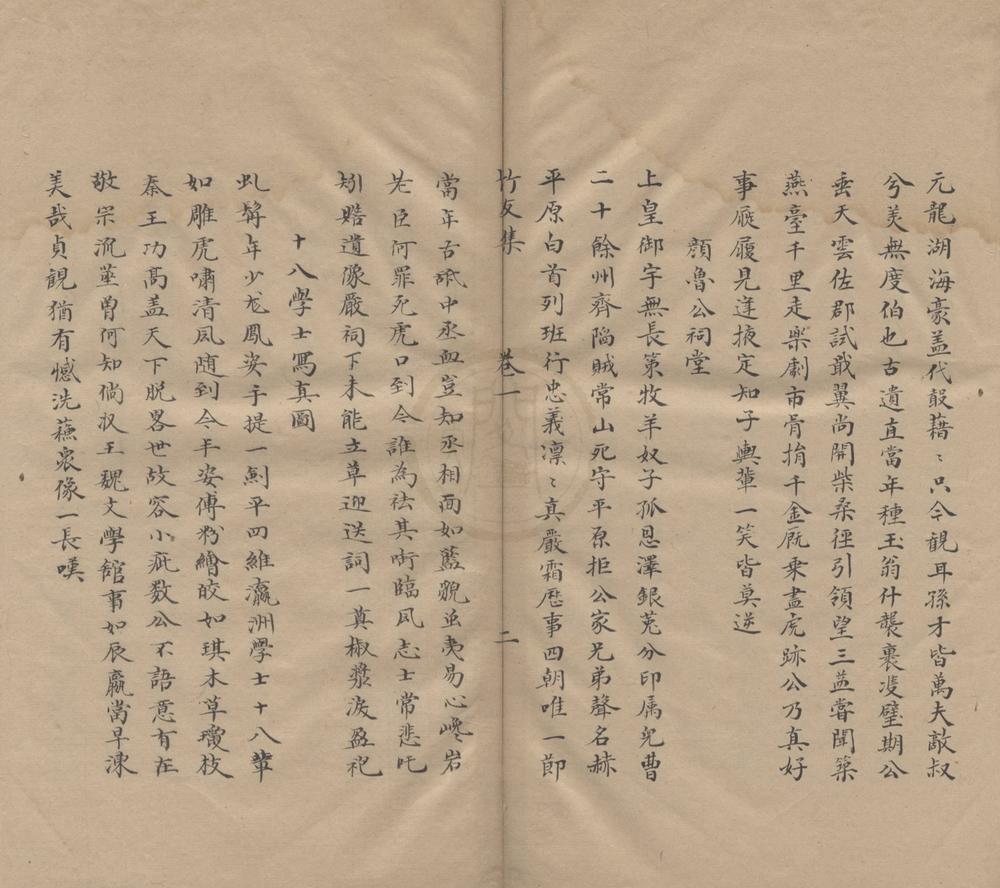 元龍湖海豪盖代殷藉〻只今観耳孫才皆萬夫敵叔
兮美無度伯也古遺直當年種玉翁什襲裹雙璧期公
垂天雲佐郡試戢翼尚開柴桑徑引領望三益嘗聞築
燕臺千里走樂劇市骨捐千金厩乗盡虎跡公乃真好
事屐履見逢掖定知子輿輩一笑皆莫逆
顔魯公祠堂
上皇御宇無長策牧羊奴子孤恩澤銀莵分印属兒曹
二十餘州齊陥賊常山死守平原拒公家兄弟聲名赫
平原白首列班行忠義凛〻真嚴霜歴事四朝唯一節
竹友集 巻一 二
當年舌䑛中丞血豈知丞相面如藍貌並夷易心巉岩
老臣何罪死虎口到今誰為袪其衘臨風志士常悲吒
矧瞻遺像嚴祠下未能立草迎送詞一奠椒漿淚盈祀
十八學士寫真圖
虬髯年少龙鳳姿手提一劍平四維瀛洲學士十八輩
如雕虎嘯清風随到今丰姿傳粉繪皎如琪木草瓊枝
秦王功髙盖天下脱畧世故容小疵数公不語意有在
敬宗流輩曽何知倘収王魏文學館事如辰嬴當早諫
美哉貞観猶有憾洗藤衆像一長嘆